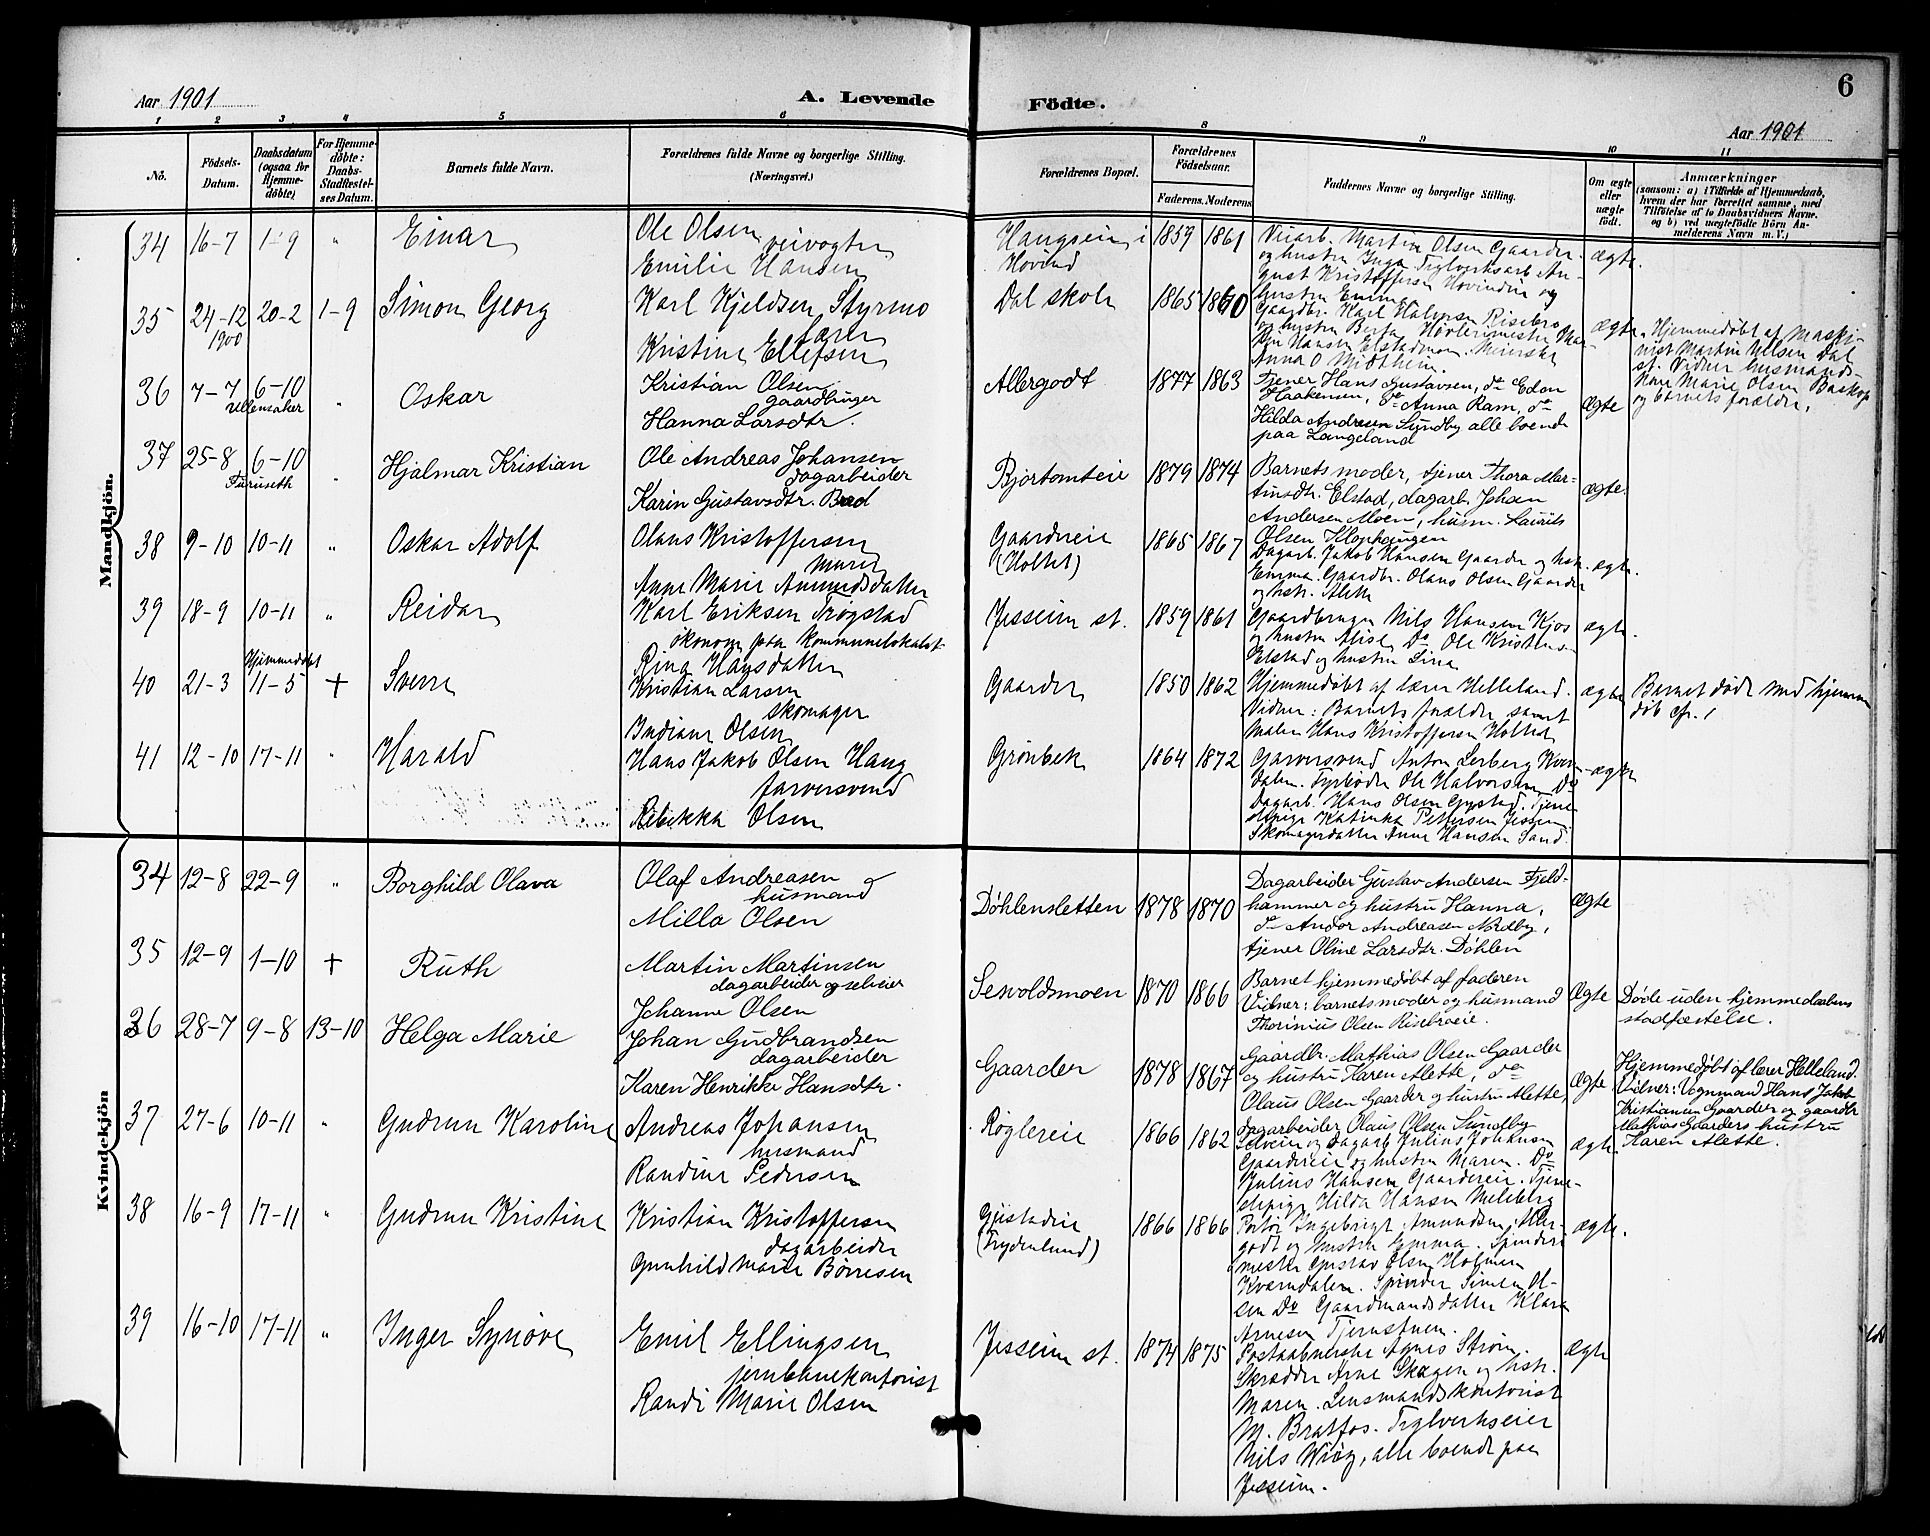 6
Aar 1901
A. Levende
Födte.
Aar 1901
1 2 3 4 5 6 8 9 10 11
No.
Födsels-Datum.
Daabsdatum (ogsaa for Hjemmedöbte)
For Hjemmedöbte: Daabs-Stadfæstelses Datum.
Barnets fulde Navn.
Forældrenes fulde Navne og borgerlige Stilling.
(Næringsvei.)
Forældrenes Bopæl.
Forældrenes Födselsaar.
Faderens. Moderens
Faddernes Navne og borgerlige Stilling.
Om ægte eller uægte födt.
Anmærkninger
(saasom: a) i Tilfælde af Hjemmedaab, hvem der har forrettet samme, med Tilföielse af to Daabsvidners Navne. og b) ved uægtefödte Börn Anmelderens Navn m. V.)
Mandkjön.
34 16-7 1-9 " Einar
Ole Olsen veivogter
Emilie Hansen
Haugseie i Hovind
1859 1861
Veiarb. Martin Olsen Gaarder
og hustru Inga. Teglverksarb. Au-
gust Kristoffersen Hovindeie og
hustru Emma
ægte.
35 24-12 1900 20-2 1-9 Simon Georg
Karl Kjeldsen Styrmo
lærer
Kristine Ellefsen
Dal skole
1865 1860
Gaardbr. Karl Halvorsen Risebro
og hustru Berta. Høvlerimester Mar-
tin Hansen Elstadmoen. Meierske
Anna O Midtheim.
ægte.
Hjemmedøbt af maski-
nist Martin Nilsen Dal
st. Vidner husmands-
kone Marie Olsen Bakkop
og barnets forældre.
36 7-7 6-10 Ullensaker " Oskar
Kristian Olsen
gaardbruger
Hanna Larsdtr.
Algergodt
1877 1863
Tjener Hans Gustavsen, do Edon
Haakensen, do Anna Ram, do
Hilda Andresen Sundby alle boende
paa Langeland
Ægte
37 25-8 6-10 Furuseth " Hjalmar Kristian
Ole Andreas Johansen
dagarbeider
Karin Gustavsdtr. Brad
Bjørtomteie
1879 1874
Barnets moder, tjener Thora Mar-
tinsdtr. Elstad, dagarb. Johan
Andersen Moen, husm. Laurits
Olsen Klophaugen
ægte.
38 9-10 10-11 " Oskar Adolf
Olaus Kristoffersen
murer
Anne Marie Amundsdatter
Gaardereie
(Holtet)
1865 1867
Dagarb. Jakob Hansen Gaarder og hstr.
Emma. Gaardbr. Olaus Olsen Gaarder
og hstr. Alette
ægte.
39 18-9 10-11 " Reidar
Karl Eriksen Trøgstad
økonom paa kommunelokalet
Rina Hansdatter
Jessheim st.
1859 1861
Gaardbruger Nils Hansen Kjos
og hustru Alise. Do Ole Kristians-
Elstad og hustru Lina
ægte.
40 21-3 Hjemmedøbt 11-5 + Sverre
Kristian Larsen
skomager
Indiane Olsen
Gaarder
1850 1862
Hjemmedøbt af lærer Helleland.
Vidner: Barnets forældre samt
maler Hans Kristoffersen Holtet
ægte
Barnet døde med hjemme
døb cfr. 1
41 12-10 17-11 " Harald
Hans Jakob Olsen Haug
farversvend
Rebekka Olsen
Grønbek
1864 1872
Garversvend Anton Lerberg Kvern-
dalen. Fyrbøder Ole Halvorsen Do
Dagarb. Hans Olsen Gystad. Tjene-
stepige Katinka Pettersen Jessheim
Skomagerdatter Anne Hansen Sand.
ægte
Kvindekjön
34 12-8 22-9 " Borghild Olava
Olaf Andreasen
husmand
Milla Olsen
Døhlensletten
1878 1870
Dagarbeider Gustav Andersen Fjeld-
hammer og hustru Hanna,
do Andor Andreasen Nordby,
tjener Oline Larsdtr. Døhlen
Ægte
35 12-9 1-10 + Ruth
Martin Martinsen
dagarbeider og selveier
Johanne Olsen
Sesvoldsmoen
1870 1866
Barnet hjemmedøbt af faderen
Vidner: barnets moder og husmand
Thorinius Olsen Risebroeie.
Ægte
Døde uden hjemmedaabens
stadfæstelse.
36 28-7 9-8 13-10 Helga Marie
Johan Gudbrandsen
dagarbeider
Karen Henrikke Hansdtr.
Gaarder
1878 1867
Gaardbr. Mathias Olsen Gaarder
og hustru Karen Alette, do
Olaus Olsen Gaarder og hustru Alette,
dagarbeider Olaus Olsen Sundby
Ægte
Hjemmedøbt af lærer Helleland.
Vidner: Vognmand Hans Jakob
Kristiansen Gaarder og gaardbr
Mathias Gaarders hustru
Karen Alette.
37 27-6 10-11 " Gudrun Karoline
Andreas Johansen
husmand
Randine Pedersen
Røglereie
1866 1862
Selveier og Dagarb. Julius Johansen
Gaardereie og hustru Maren. Do
Julius Hansen Gaardereie. Tjene-
stepige Hilda Hansen Melsberg
ægte
38 16-9 17-11 " Gudrun Kristine
Kristian Kristoffersen
dagarbeider
Gunhild Marie Børresen
Gjestadeie
(Frydenlund)
1866 1866
Portør Ingebrigt Amundsen Alger-
godt og hustru Emma. Spinderi
mester Gustav Olsen Holmen
Kverndalen. Spinder Simen Ol-
sen Do Gaardmandsdatter Klara
Arnesen Tjernstuen.
ægte.
39 16-10 17-11 " Inger Synøve
Emil Ellingsen
jernbanekontorist
Randi Marie Olsen
Jessheim st.
1874 1875
Postaabnerske Agnes Strøm.
Skrædder Arne Skagen og hstr.
Maren. Lensmandskontorist
M. Bratfos. Teglverkseier
Nils Wiig, alle boende paa
Jessheim.
ægte